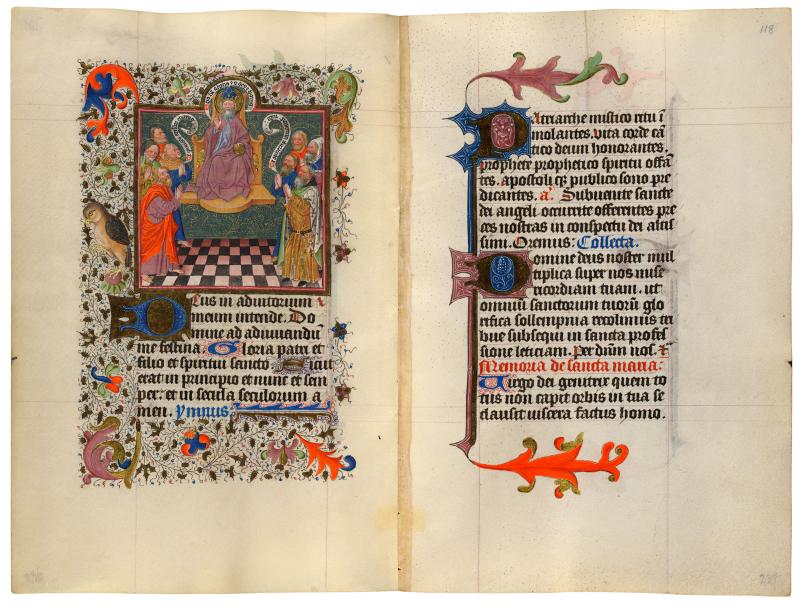 Eus in adiutorium
meum intende. Do
mine ad adiuuandū
me festina. Gloria patri et
filio et spiritui sancto Sicut
erat in principio et nunc et sem
per: et in secula seculorum a
men. Ymnus:
118
Patriarche mistico ritu ī
molantes. vita corde cā
tico deum honorantes.
prophete prophetico spiritu offā
tes. apostoli qȝ publico sono pre
dicantes. a. Subuenite sancte
dei angeli occurite offerentes pre
ces nostras in conspectu dei altis
simi. Oremus: Collecta.
Domine deus noster mul
tiplica super nos mise
ricordiam tuam. ut
omniū sanctorum tuorū glo
rifica sollempnia recolimus tri
bue subsequi in sancta profes
sione leticiam. Per dnm nos.
Memoria de sancta maria:
Uirgo dei genitrix quem to
tus non capit orbis in tua se
clausit viscera factus homo.